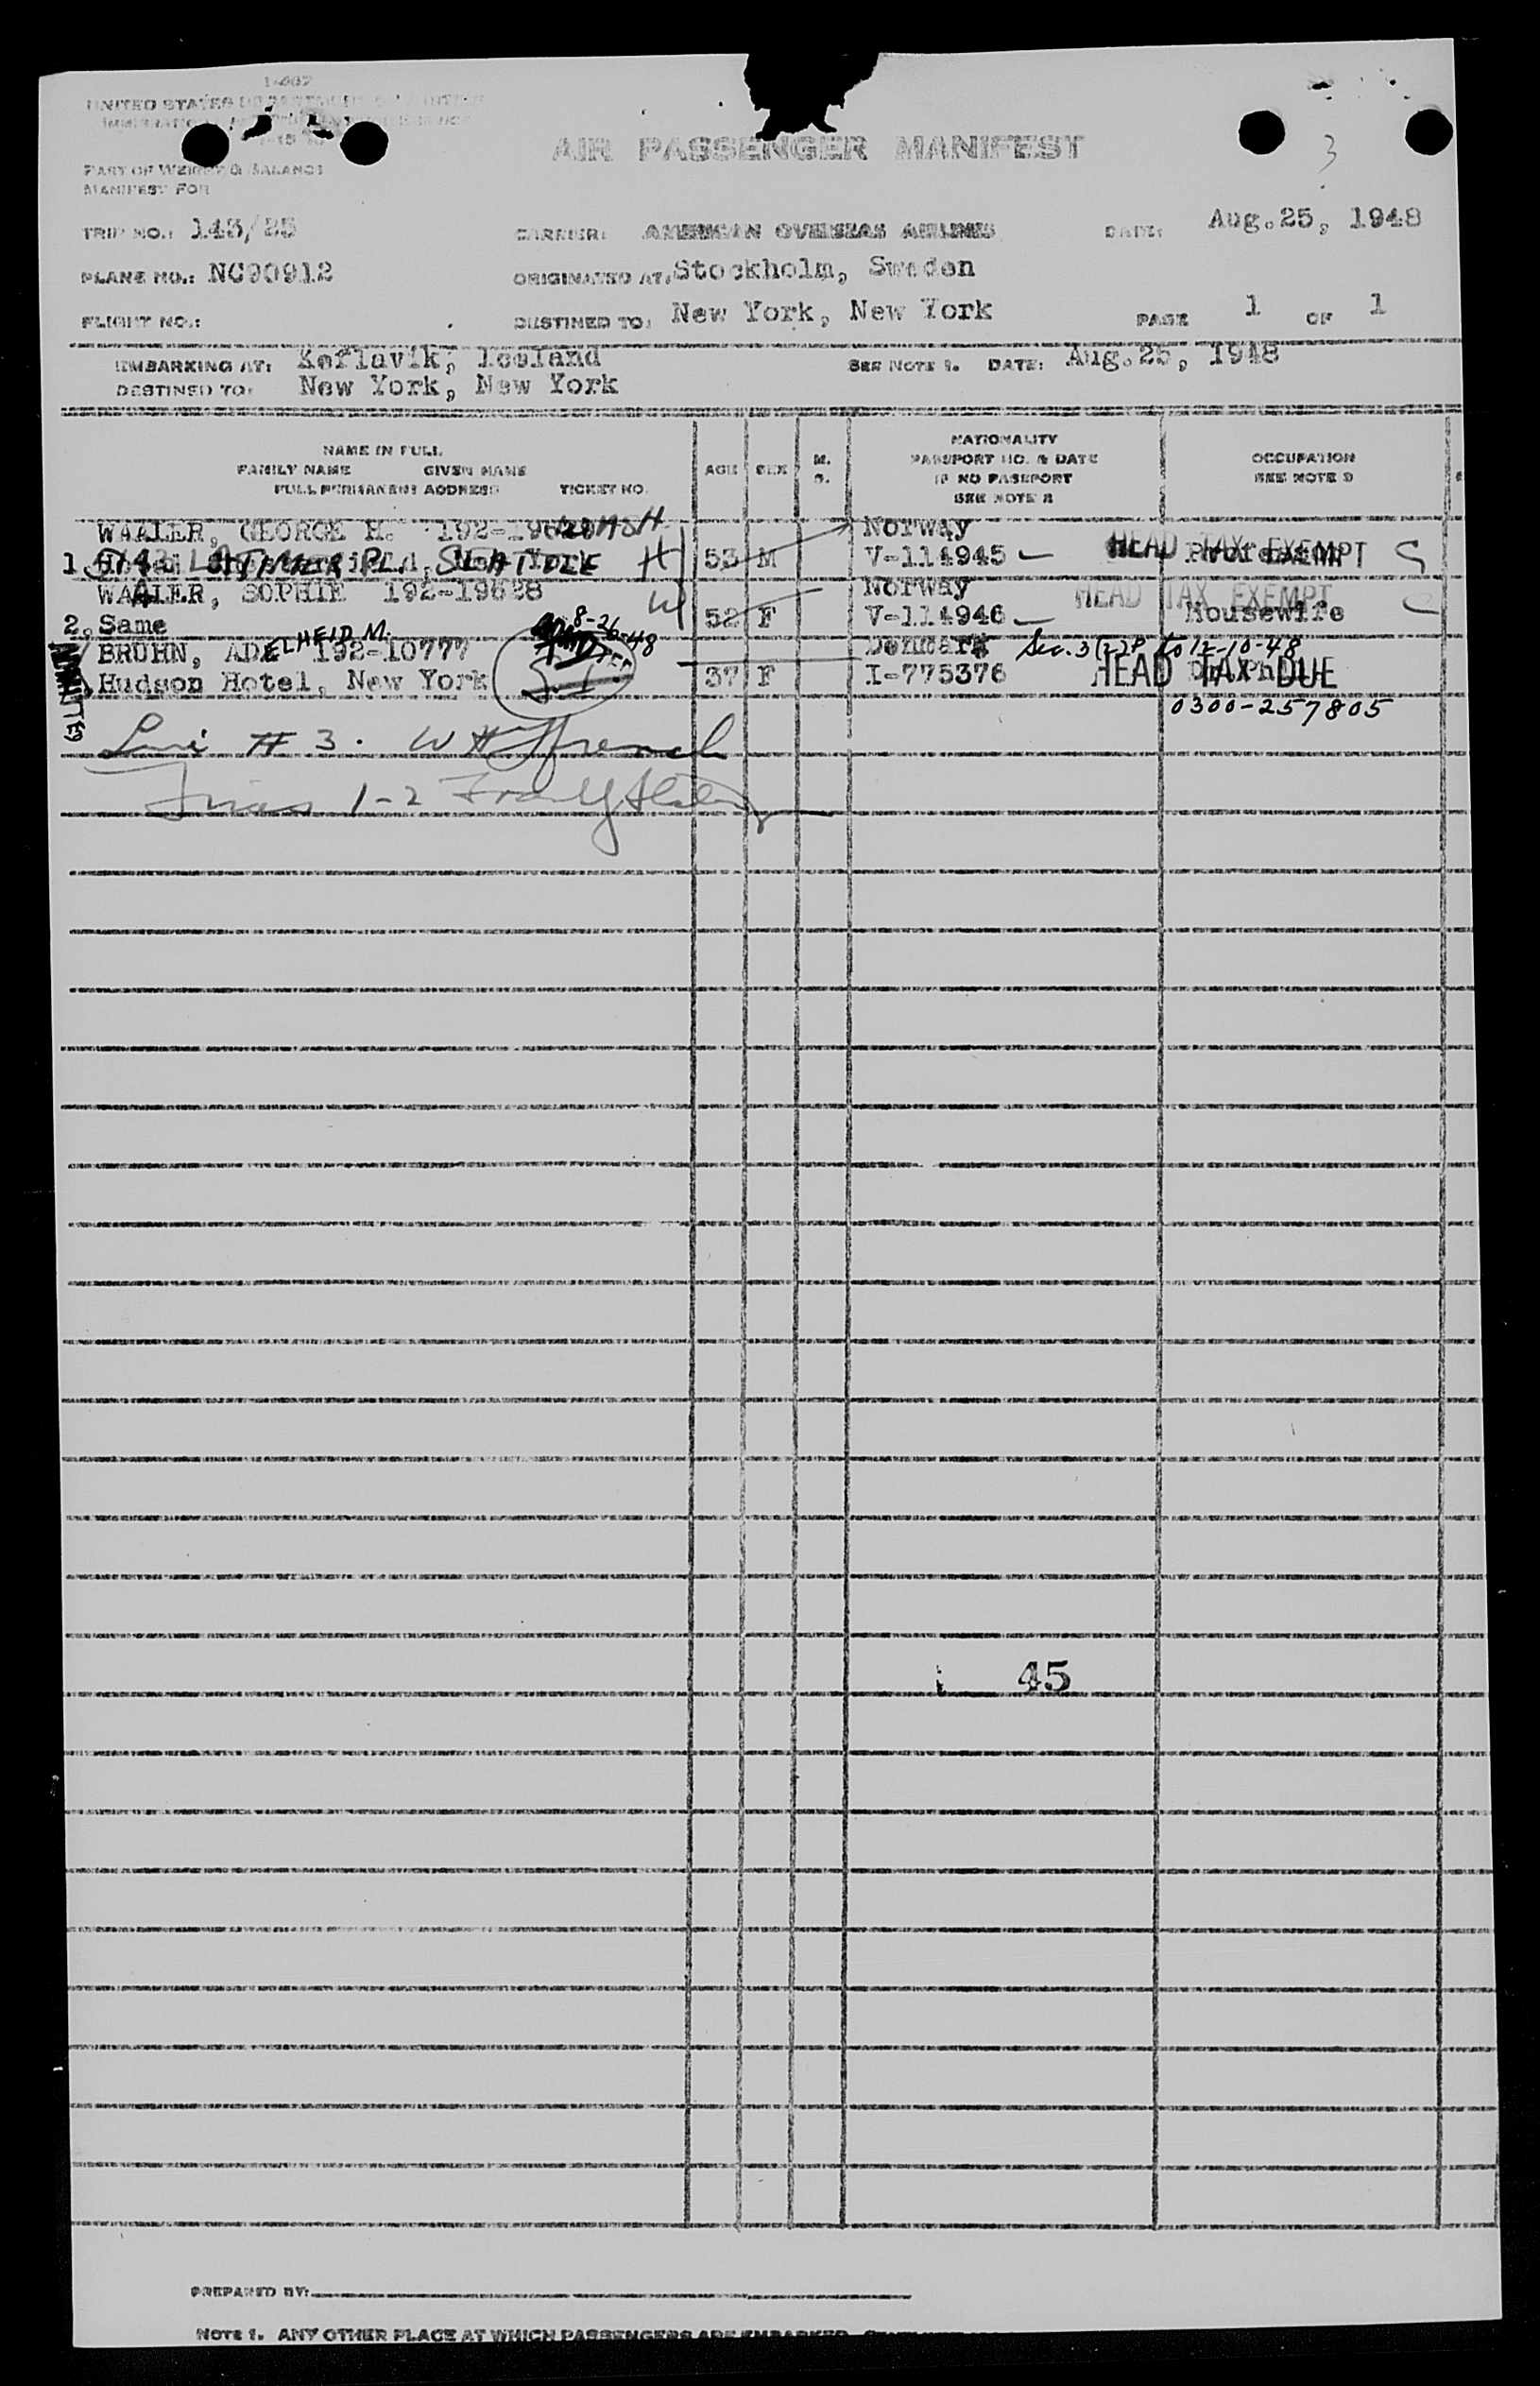 I-402
UNITED STATES
AIR PASSENGER MANIFEST
3
PART OF WEIGHT & BALANCE
MANIFEST FOR
TRIP NO.: 143/25 CARRIER: AMERICAN OVERSEAS AIRLINES DATE: Aug.25, 1948
PLANE NO.: NC90912 ORIGINATED AT: Stockholm, Sweden
FLIGHT NO.: DESTINED TO: New York, New York PAGE 1 OF 1
EMBARKING AT: Keflavik, Iceland SEE NOTE 1. DATE: Aug.25, 1948
DESTINED TO: New York, New York
NAME IN FULL
FAMILY NAME GIVEN NAME
FULL PERMANENT ADDRESS TICKET NO.
AGE SEX M. S.
NATIONALITY
PASSPORT NO. & DATE
IF NO PASSPORT
SEE NOTE 2
OCCUPATION
SEE NOTE 3
WAALER, GEORGE H. Norway
1. SEATTLE H 53 M V-114945 HEAD TAX EXEMPT
WAALER, SOPHIE 192-19628 W Norway HEAD TAX EXEMPT
2. Same 52 F V-114946 Housewife
BRUHN, ADELHEID M. 192-10777 8-26-48 Denmark Sec. 3(2) to 12-10-48
Hudson Hotel, New York S.I. 37 F I-775376 HEAD TAX DUE
0300-257805
ADMITTED
Line # 3. W H French
1-2
45
PREPARED BY:
NOTE 1. ANY OTHER PLACE AT WHICH PASSENGERS ARE EMBARKED